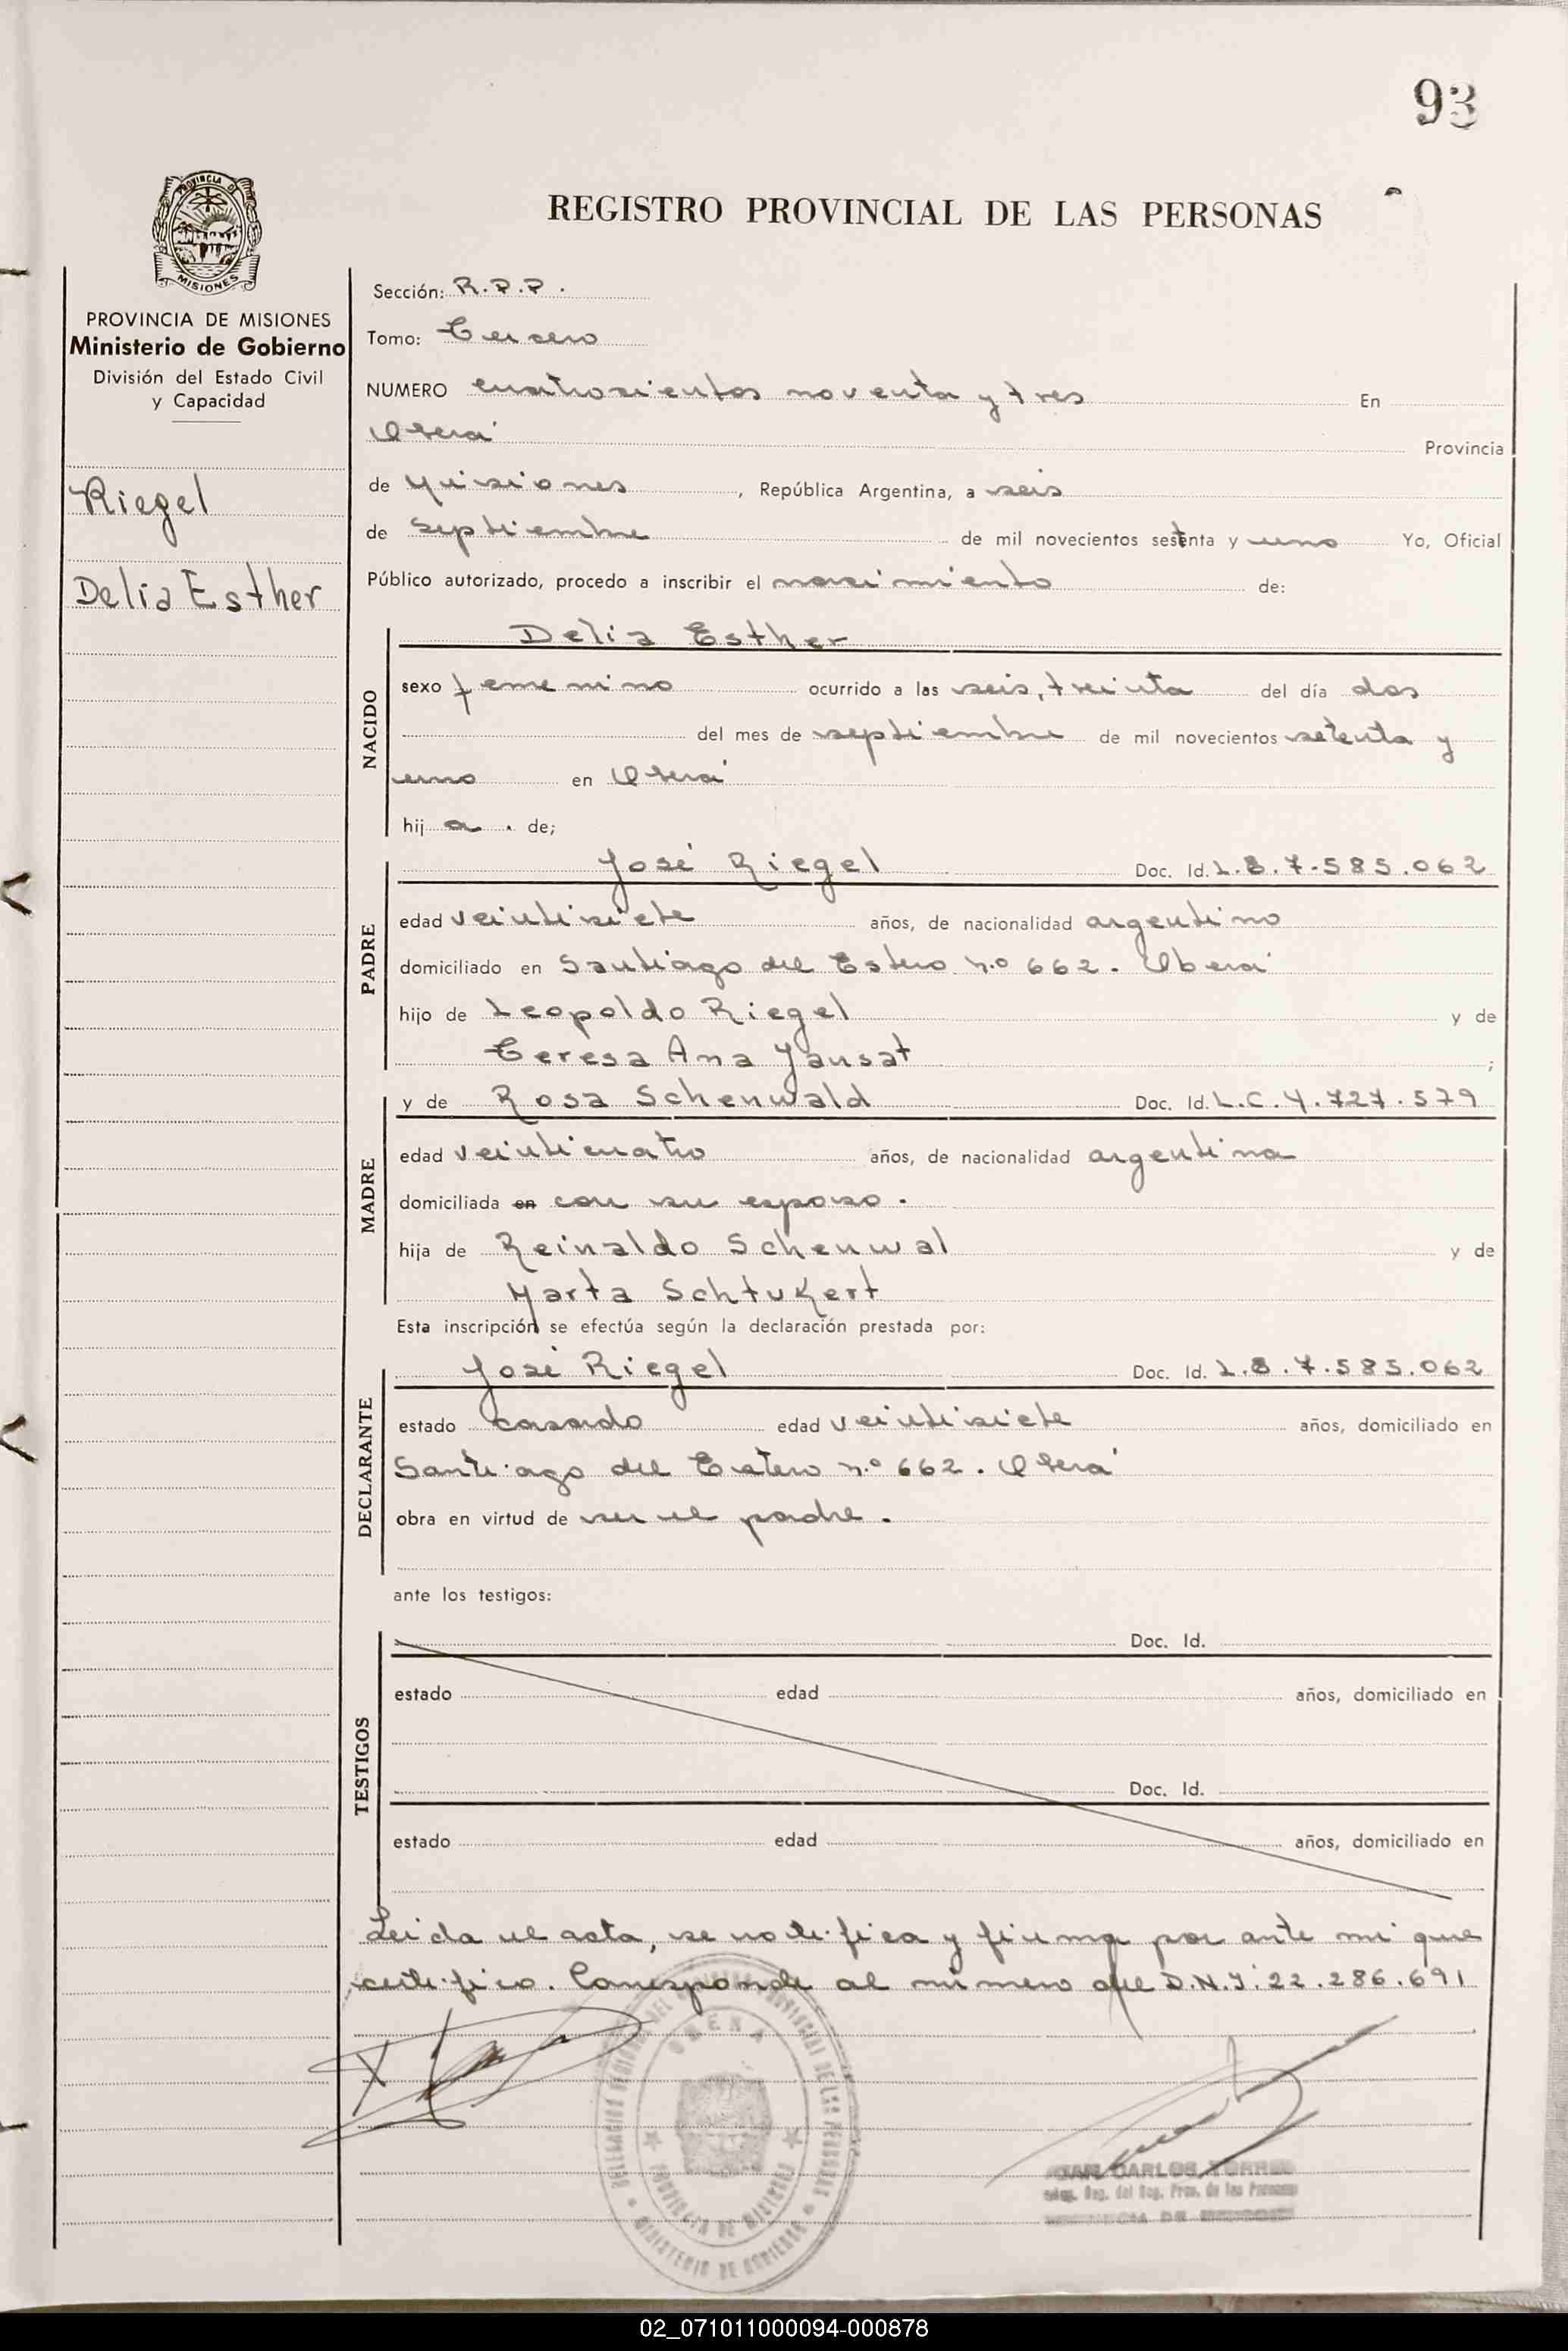 93
PROVINCIA DE
MISIONES
REGISTRO PROVINCIAL DE LAS PERSONAS
PROVINCIA DE MISIONES
Ministerio de Gobierno
División del Estado Civil
y Capacidad
Riegel
Delia Esther
Sección: R.P.P.
Tomo: Tercero
NUMERO cuatrocientos noventa y tres En
Oberá Provincia
de Misiones, República Argentina, a seis
de septiembre de mil novecientos setenta y uno Yo, Oficial
Público autorizado, procedo a inscribir el nacimiento de:
NACIDO
Delia Esther
sexo femenino ocurrido a las seis, treinta del día dos
del mes de septiembre de mil novecientos setenta y
uno en Oberá
hija. de;
PADRE
José Riegel Doc. Id. L.E. 7.585.062
edad veintisiete años, de nacionalidad argentino
domiciliado en Santiago del Estero n.º 662. Oberá
hijo de Leopoldo Riegel y de
Teresa Ana Yausat;
MADRE
y de Rosa Schenwald Doc. Id. L.C. 4.727.579
edad veinticuatro años, de nacionalidad argentina
domiciliada en con su esposo.
hija de Reinaldo Schenwal y de
Marta Schtukert
Esta inscripción se efectúa según la declaración prestada por:
DECLARANTE
José Riegel Doc. Id. L.E. 7.585.062
estado casado edad veintisiete años, domiciliado en
Santiago del Estero n.º 662. Oberá
obra en virtud de ser el padre.
ante los testigos:
TESTIGOS
Doc. Id.
estado edad años, domiciliado en
Doc. Id.
estado edad años, domiciliado en
Leída el acta, se notifica y firma por ante mi que
certifico. Corresponde al número de D.N.I: 22.286.691
OBERA
PROVINCIA DE MISIONES
MINISTERIO DE GOBIERNO
CARLOS TORRES
Reg. del Reg. Prov. de las Personas
PROVINCIA DE MISIONES
02_071011000094-000878